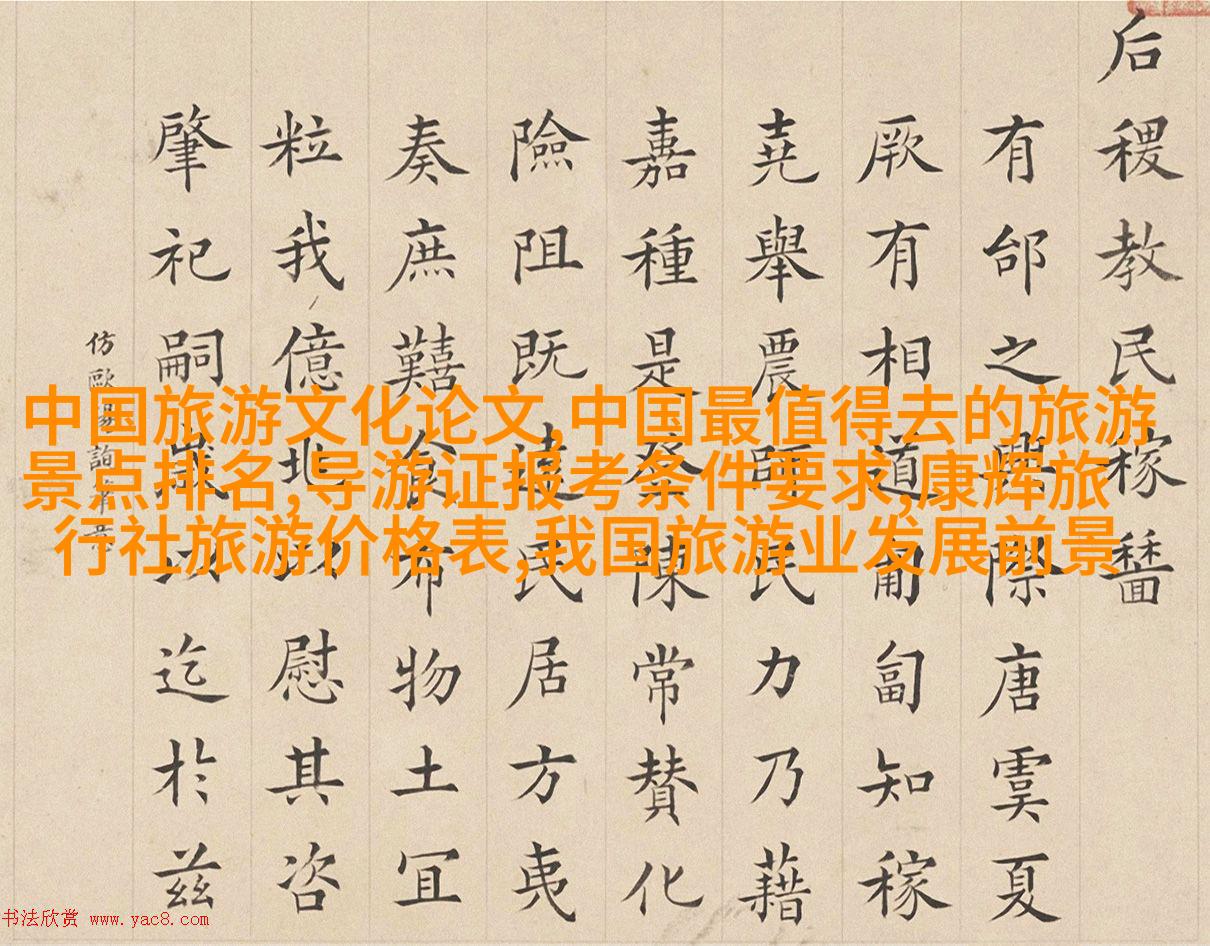 后稷教民稼穡
有邰之興際唐虞夏
厥有相道匍匐知稼
堯舉農師民力乃藉
嘉種是陳常贊化
險阻既民居方夷
奏庶囏食布物土宜
粒我億慰其咨
肇祀嗣迄於茲
仿歐陽詢
中国旅游文化论文,中国最值得去的旅游
景点排名,导游证报考条件要求,康辉旅
行社旅游价格表,我国旅游业发展前景
书法欣赏 www.yac8.com